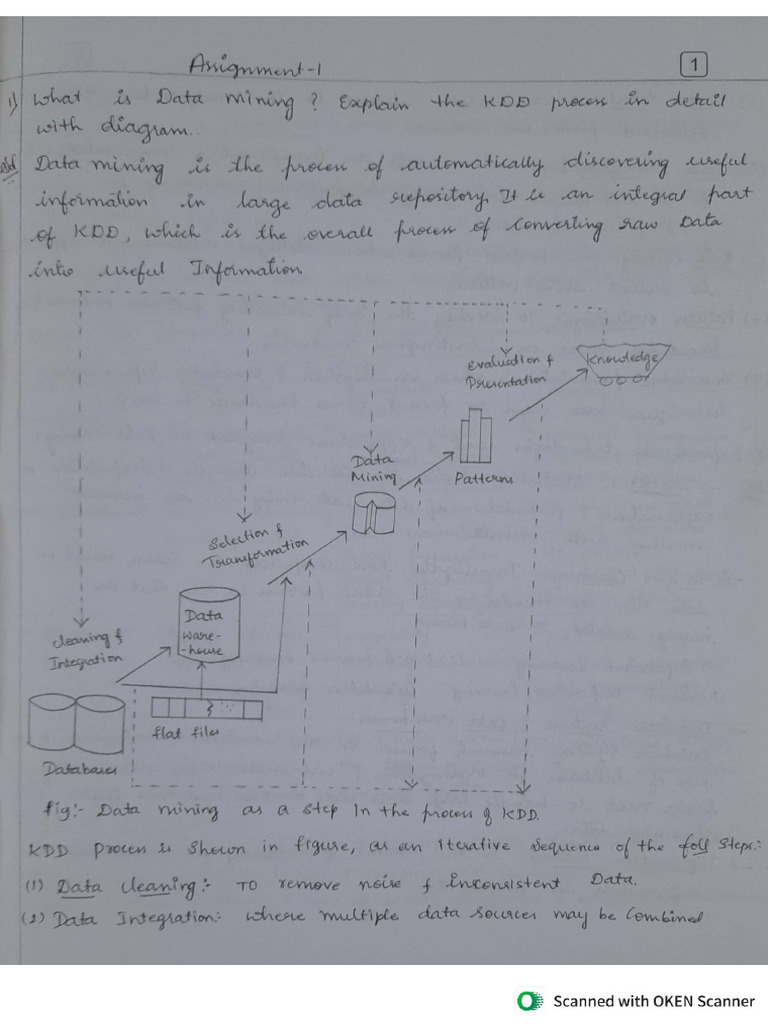 Assignment-1
1
1) What is Data mining? Explain the KDD process in detail
with diagram.
Data mining is the process of automatically discovering useful
information in large data repository. It is an integral part
of KDD, which is the overall process of converting raw Data
into useful Information.
Evaluation &
Presentation
Knowledge
Data
Mining
Patterns
Selection &
Transformation
Data
ware-
-house
Cleaning &
Integration
flat files
Databases
fig:- Data mining as a step in the process of KDD.
KDD process is shown in figure, as an iterative sequence of the foll steps:-
(1) Data cleaning:- To remove noise & inconsistent Data.
(2) Data Integration:- where multiple data sources may be combined
Scanned with OKEN Scanner